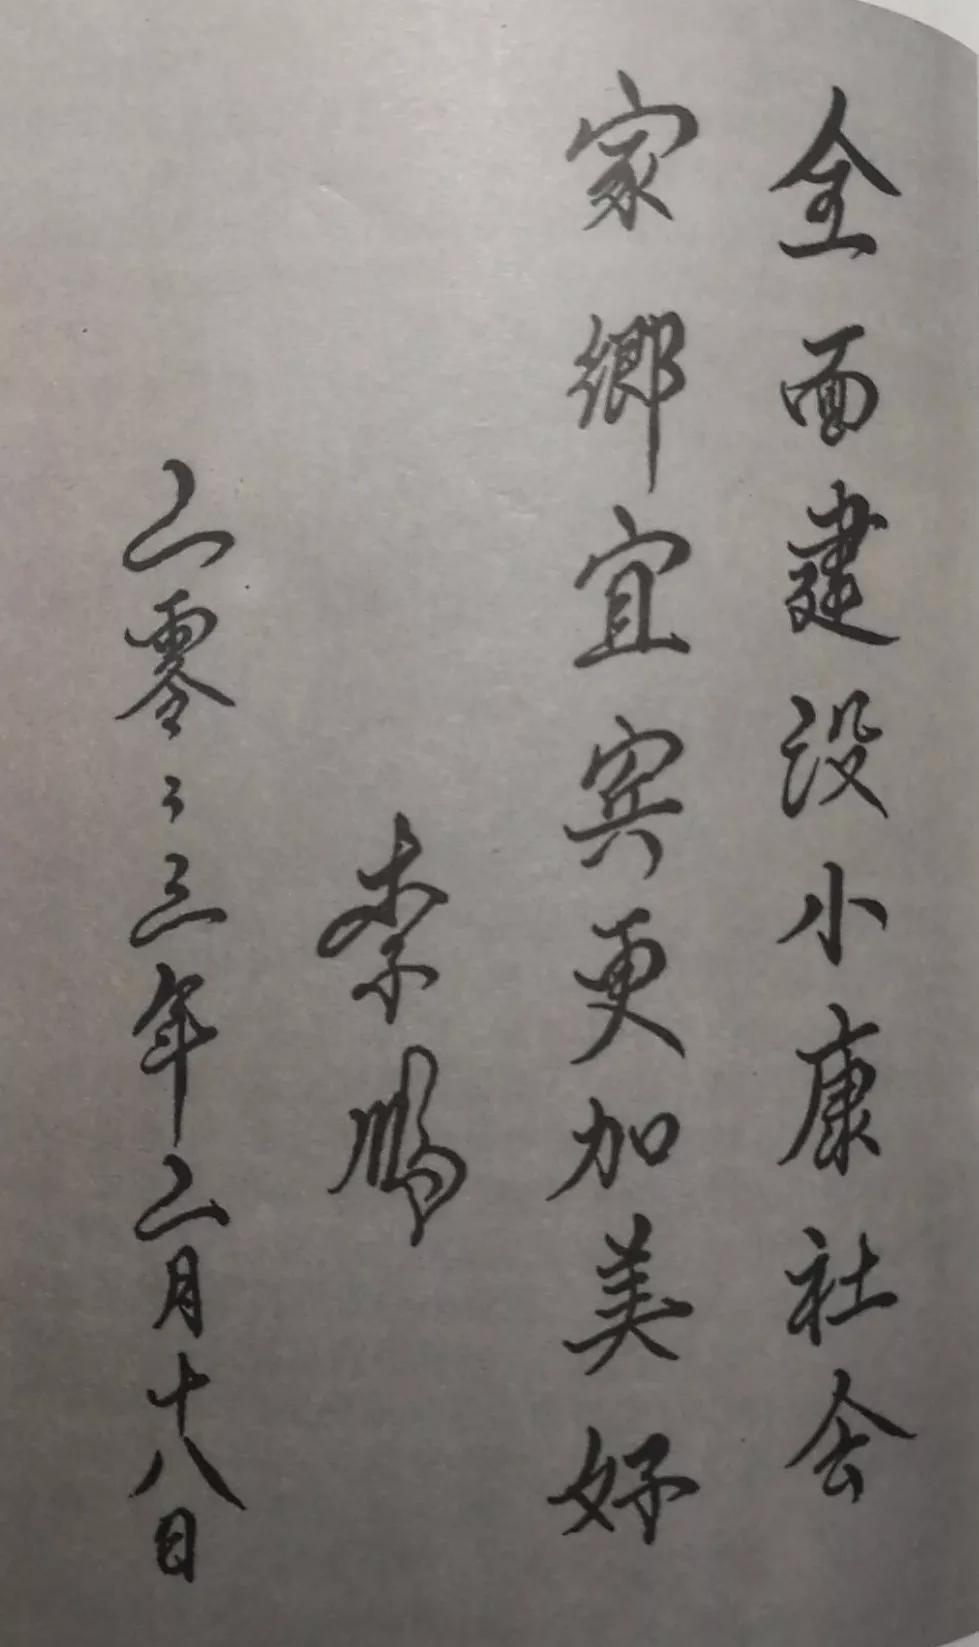 全面建设小康社会
家鄉宜宾更加美好
李鹏
二零零三年二月十八日